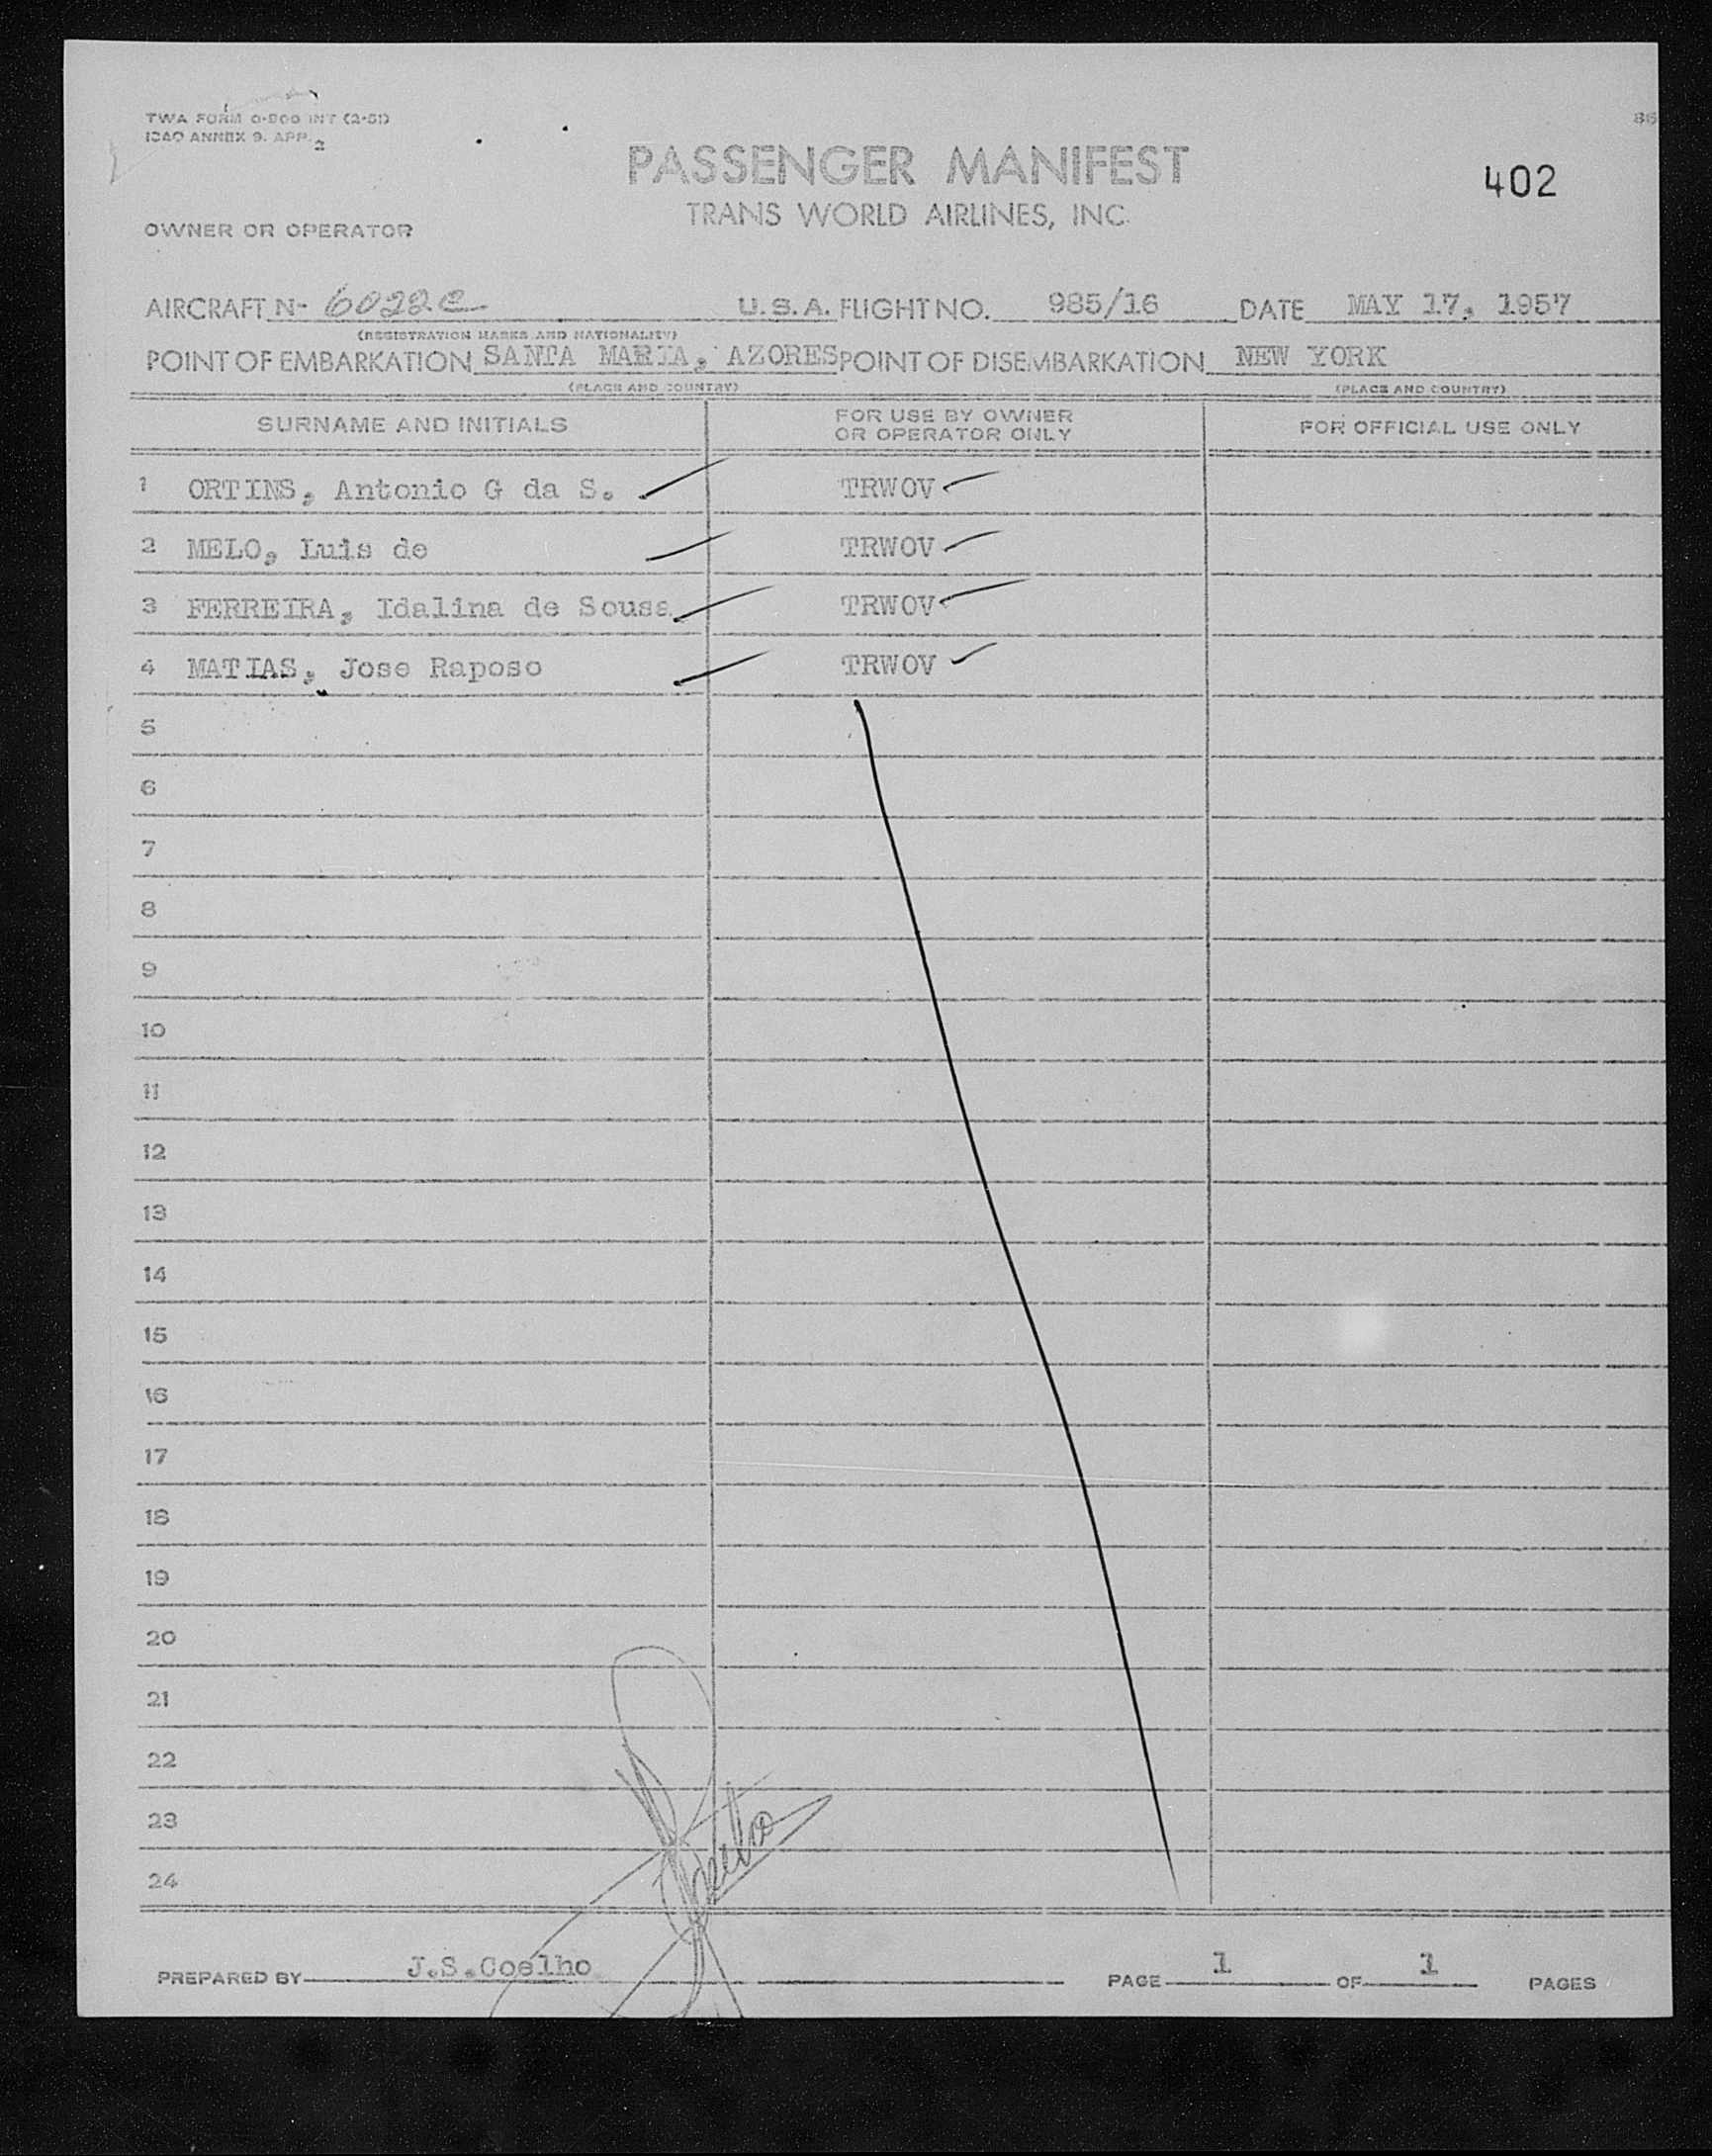 TWA FORM O-800 INT (2-51)
ICAO ANNEX 9. APP. 2
86
PASSENGER MANIFEST
402
TRANS WORLD AIRLINES, INC.
OWNER OR OPERATOR
AIRCRAFT N- 6022C U.S.A. FLIGHT NO. 985/16 DATE MAY 17, 1957
(REGISTRATION MARKS AND NATIONALITY)
POINT OF EMBARKATION SANTA MARIA, AZORES POINT OF DISEMBARKATION NEW YORK
(PLACE AND COUNTRY) (PLACE AND COUNTRY)
SURNAME AND INITIALS FOR USE BY OWNER OR OPERATOR ONLY FOR OFFICIAL USE ONLY
1 ORTINS, Antonio G da S. TRWOV
2 MELO, Luis de TRWOV
3 FERREIRA, Idalina de Sousa TRWOV
4 MATIAS, Jose Raposo TRWOV
5
6
7
8
9
10
11
12
13
14
15
16
17
18
19
20
21
22
23
24
PREPARED BY J.S.Coelho PAGE 1 OF 1 PAGES